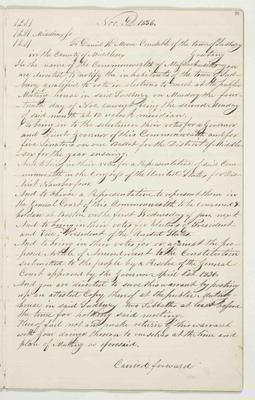 Nov. 2d 1836.
To Daniel H. Moore Constable of the town of Sudbury
in the County of Middlesex Greeting
In the name of the Commonwealth of Massachusetts you
are directed to notify the inhabitants of the town of Sud-
bury qualified to vote in elections to meet at the public
Meeting house in said Sudbury on Monday the four-
teenth day of Nov. current being the second Monday
of said month at 12 o'clock meridian
To bring in to the selectmen their votes for a Governor
and Lieut Governor of this Commonwealth and for
five Senators on one Ballot for the District of Middle-
sex for the year ensuing.
And to bring in their votes for a Representative of said Com-
monwealth in the Congress of the United States for Dis-
trict Number four
And to choose a Representative to represent them in
the General Court of this Commonwealth to be convened &
holden at Boston on the first Wednesday of Jan. next
And to bring in their votes for electors of President
and Vice President of the United States
And to bring in their votes for or against the pro-
posed Article of Amendment to the Constitution
submitted to the people by a Resolve of the General
Court approved by the Governor April 1836.
And you are directed to serve this warrant by posting
up an attested Copy thereof at the public Meeting
house in said Sudbury two Sabbaths at least before
the time for holding said meeting
Hereof fail not and make return of this warrant
with your doings thereon to ourselves at the time and
place of Meeting as aforesaid.
Carried forward